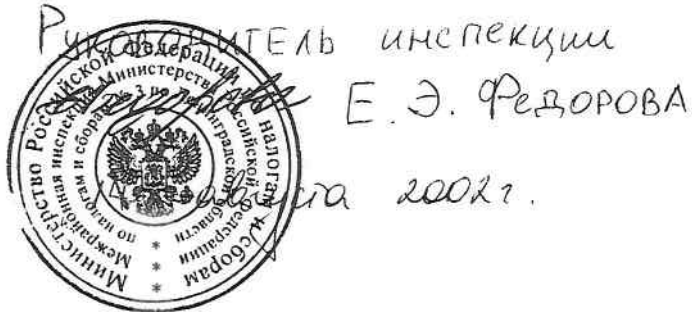 Руководитель инспекции
Е. Э. Федорова
августа 2002 г.
Министерство Российской Федерации по налогам и сборам
Межрайонная инспекция Министерства Российской Федерации
по налогам и сборам № 3 по Ленинградской области